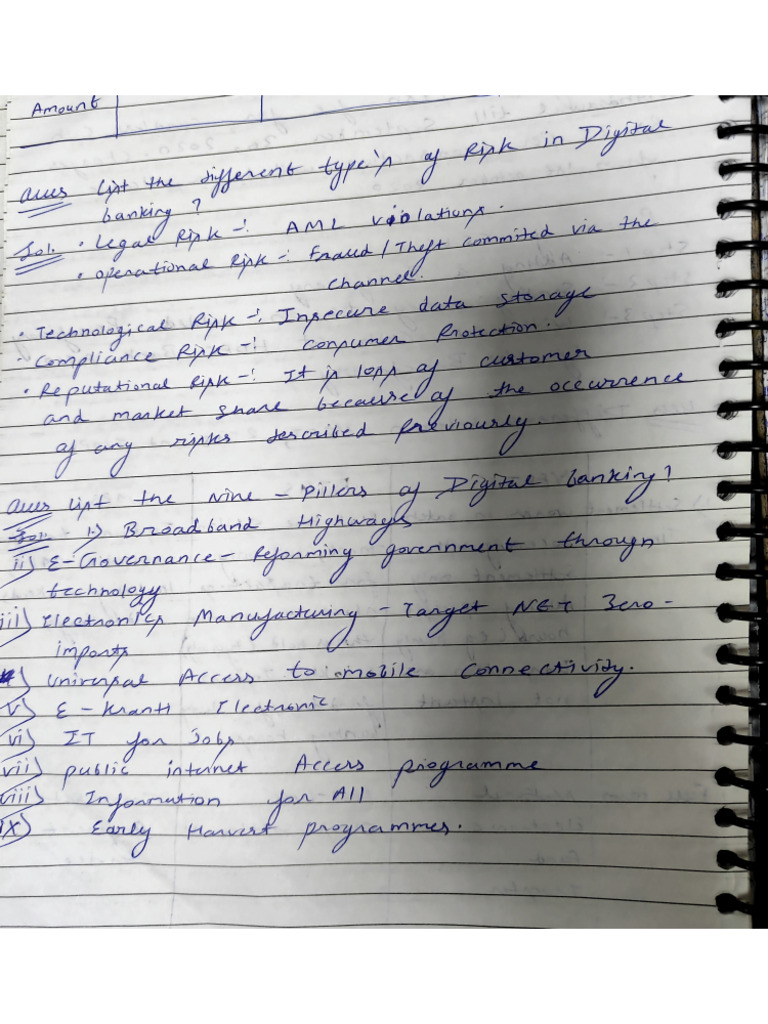 Amount
Ques List the different type's of Risk in Digital
banking ?
Sol. • Legal Risk -: AML violations.
• operational Risk -: Fraud / Theft commited via the
channel.
• Technological Risk -: Insecure data storage
• Compliance Risk -: Consumer Protection.
• Reputational Risk -: It is loss of customer
and market share because of the occurrence
of any risks described previously.
Ques List the Nine - Pillors of Digital banking?
Sol. i) Broadband Highways
ii) E-Governance - Reforming government through
technology
iii) Electronics Manufacturing - Target NET Zero -
imports
) Universal Access to mobile Connectivity.
v) E - kranti Electronic
vi) IT for Jobs
vii) public internet Access programme
viii) Information for All
ix) Early Harvest programmes.